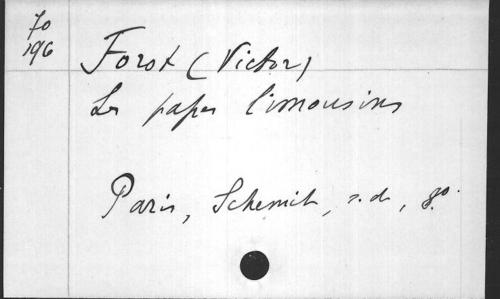 70
196
Forot (Victor)
Les papes limousins
Paris, Schemit, s.d.,